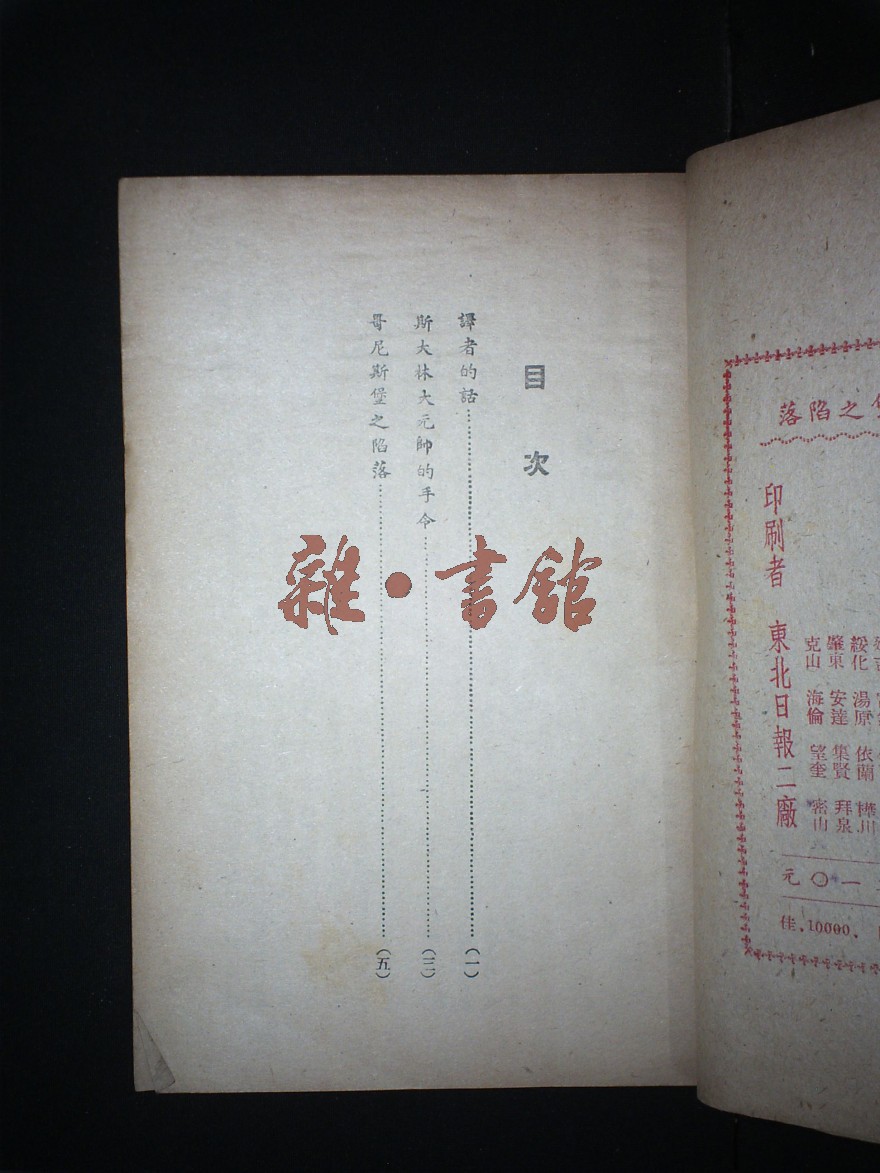 目次
譯者的話(一)
斯大林大元帥的手令(三)
哥尼斯堡之陷落(五)
雜·書館
之陷落
綏化 湯原 依蘭 樺川
肇東 安達 集賢 拜泉
克山 海倫 望奎 密山
印刷者 東北日報二廠
一〇元
佳.10000.